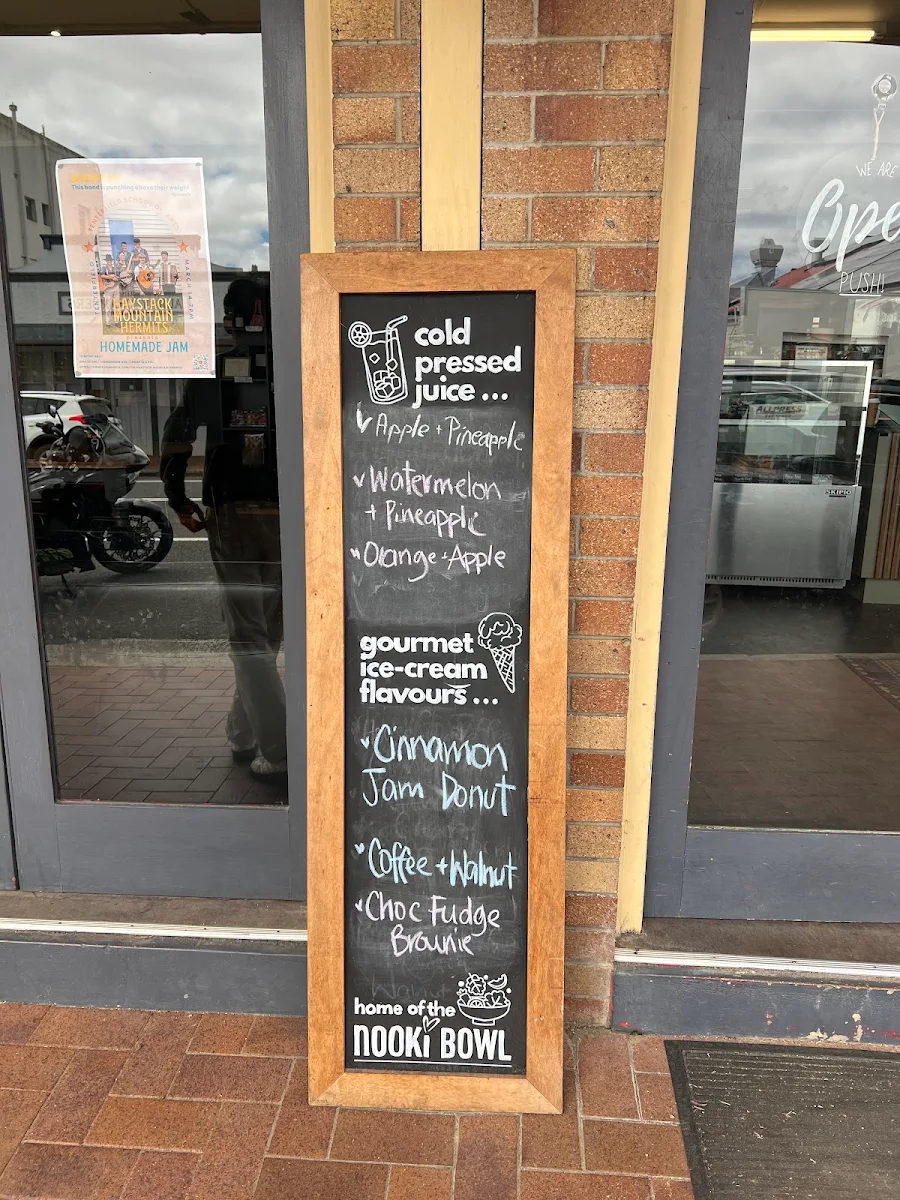 This band is punching above their weight
HAYSTACK
MOUNTAIN
HERMITS
presents
HOMEMADE JAM
cold
pressed
juice ...
Apple + Pineapple
Watermelon
+ Pineapple
Orange + Apple
gourmet
ice-cream
flavours ...
Cinnamon
Jam Donut
Coffee + Walnut
Choc Fudge
Brownie
Walnut
home of the
NOOKi BOWL
WE ARE
Ope
PUSH!
ALLPRESS
SKIPIO